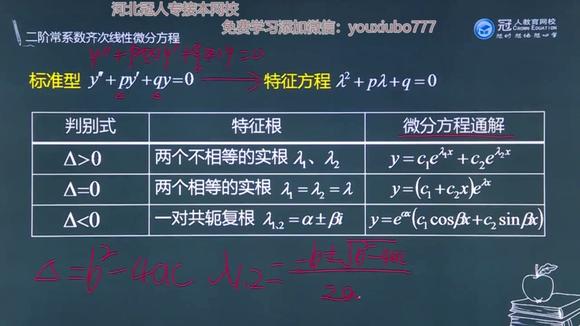 河北冠人专接本网校
免费学习添加微信：youxiubo777
冠人教育网校
CROWN EDUCATION
想时 想地 想心学
二阶常系数齐次线性微分方程
标准型 y″+py′+qy=0 特征方程 λ²+pλ+q=0
判别式 特征根 微分方程通解
Δ>0 两个不相等的实根 λ₁、λ₂ y=c₁e^{λ₁x}+c₂e^{λ₂x}
Δ=0 两个相等的实根 λ₁=λ₂=λ y=(c₁+c₂x)e^{λx}
Δ<0 一对共轭复根 λ₁.₂=α±βi y=e^{αx}(c₁cosβx+c₂sinβx)
Δ=b²-4ac λ₁.₂=(-b±√(b²-4ac))/2a